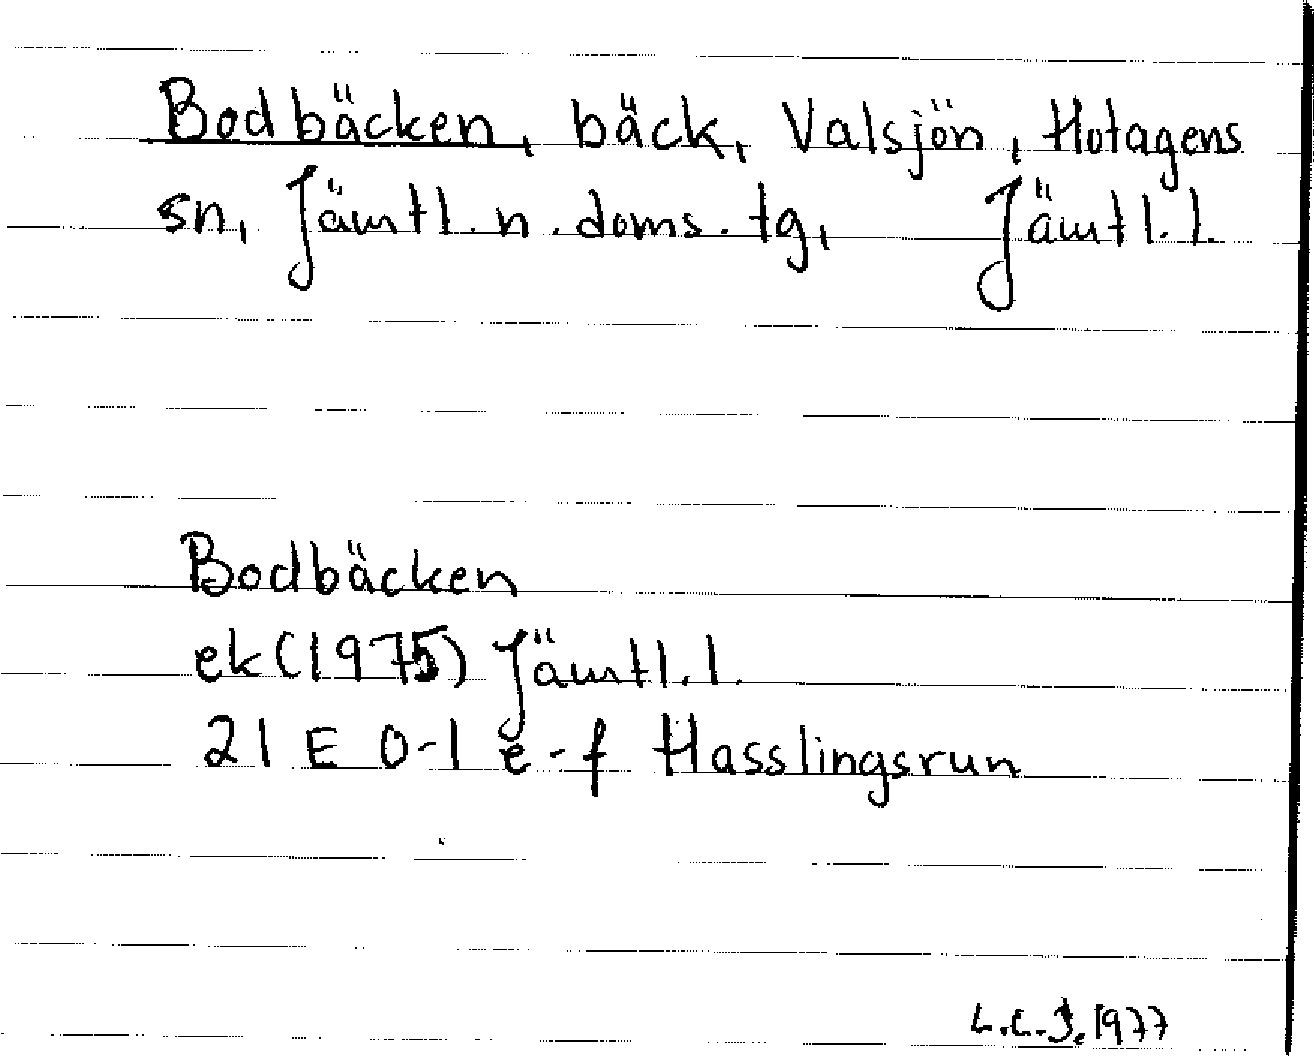 Bodbäcken, bäck, Valsjön, Hotagens
sn, Jämtl. n. doms. tg, Jämtl. l.
Bodbäcken
ek (1975) Jämtl. l.
21 E 0-1 e-f Hasslingsrun
L.L.J. 1977